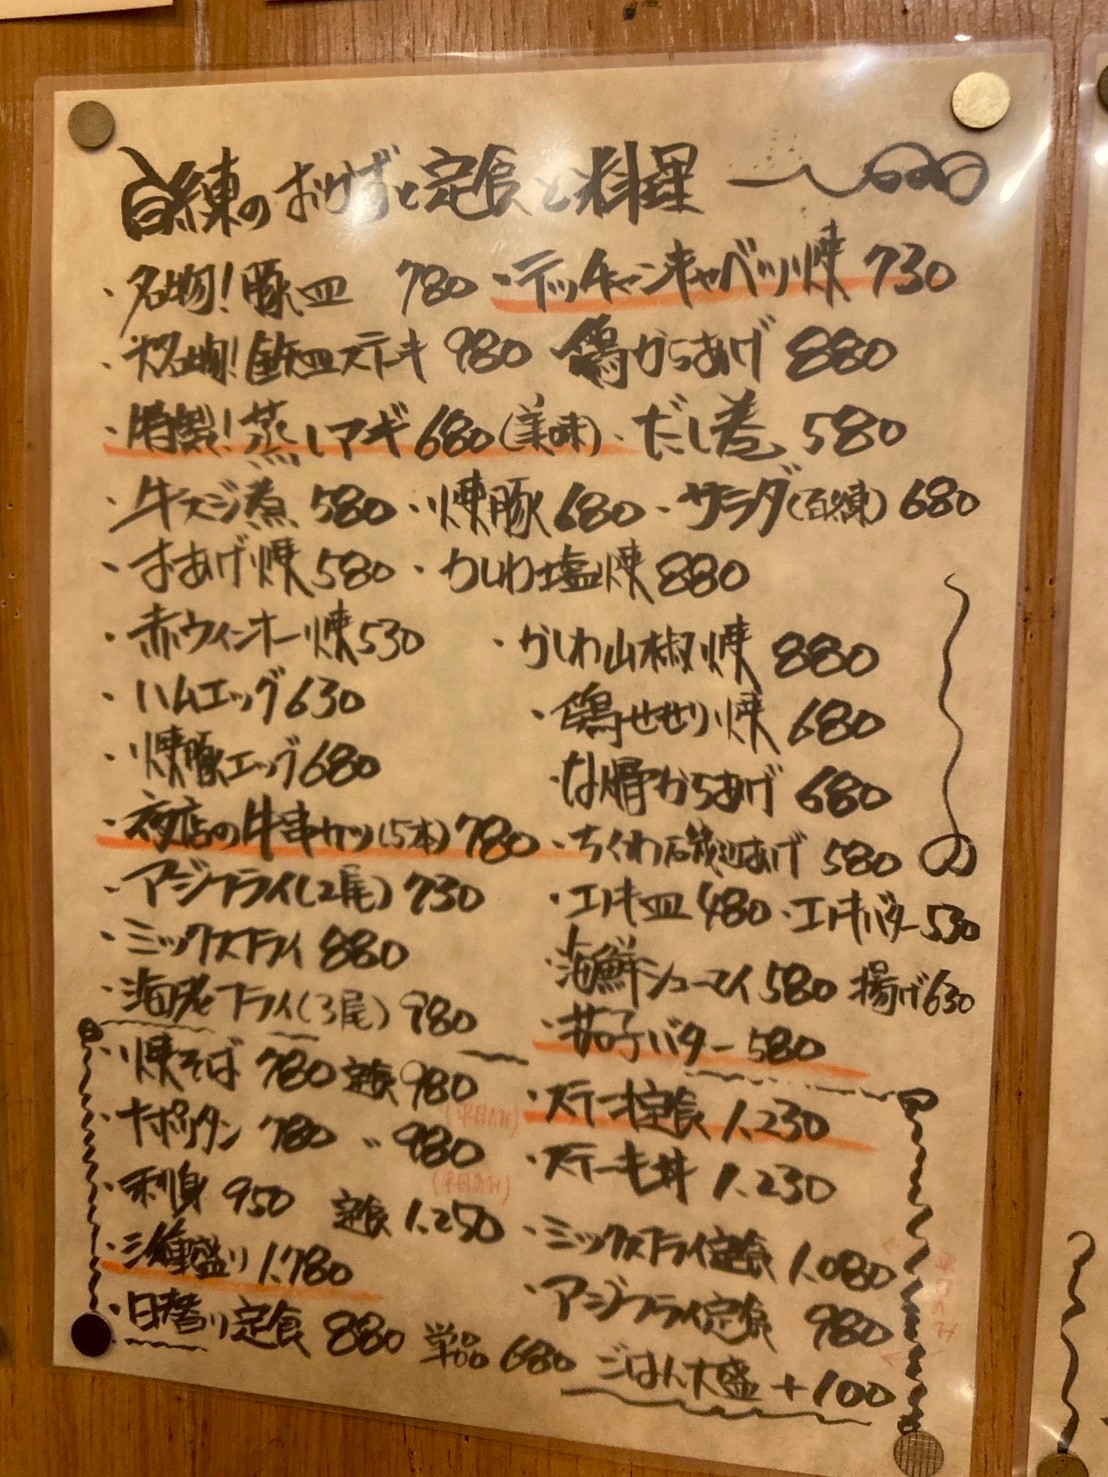 百練のおかずと定食と料理
・名物！豚皿 780 ・テッチャンキャベツ焼 730
・大名物！鉄皿ステーキ 980 ・鶏からあげ 880
・特製！蒸しアギ 680 (美味) ・だし巻 580
・牛スジ煮 580 ・焼豚 680 ・サラダ(百練) 680
・おあげ焼 580 ・かしわ塩焼 880
・赤ウィンナー焼 530 ・かしわ山椒焼 880
・ハムエッグ 630 ・鶏せせり焼 680
・焼豚エッグ 680 ・なん骨からあげ 680
・夜店の牛串カツ(5本) 780 ・ちくわ石筏辺あげ 580
・アジフライ(2尾) 730 ・エノキ皿 480 ・エノキバター 530
・ミックスフライ 880 ・海鮮シューマイ 580 揚げ 630
・海老フライ(3尾) 980 ・茄子バター 580
・焼そば 780 定食 980 ・ステーキ定食 1,230
(平日のみ)
・ナポリタン 780 〃 980 ・ステーキ丼 1,230
(平日のみ)
・刺身 950 定食 1,250 ・ミックスフライ定食 1,080
・三種盛り 1,780 ・アジフライ定食 980
平日のみ
・日替り定食 880 単品 680 ごはん大盛 +100